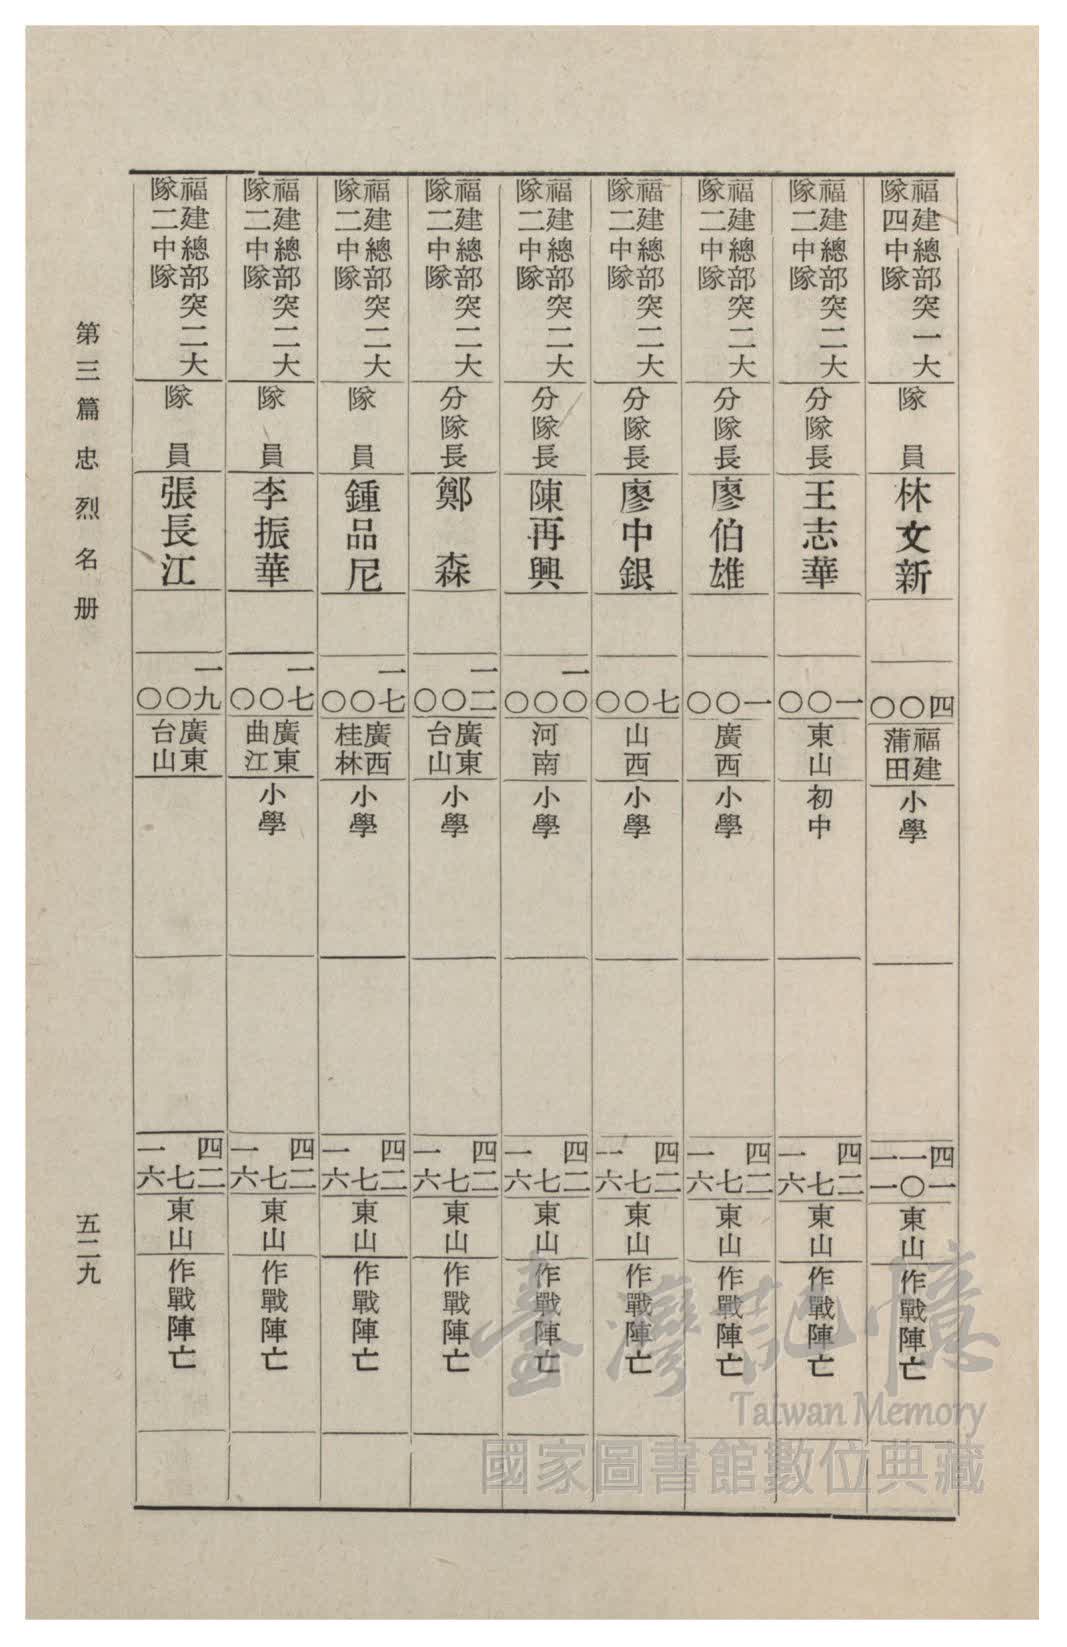 福建總部突一大
隊四中隊
隊員
林文新
四
〇
〇
福建
蒲田
小學
四一
一〇
一一
東山
作戰陣亡
福建總部突二大
隊二中隊
分隊長
王志華
一
〇
〇
東山
初中
四二
七
一六
東山
作戰陣亡
福建總部突二大
隊二中隊
分隊長
廖伯雄
一
〇
〇
廣西
小學
四二
七
一六
東山
作戰陣亡
福建總部突二大
隊二中隊
分隊長
廖中銀
七
〇
〇
山西
小學
四二
七
一六
東山
作戰陣亡
福建總部突二大
隊二中隊
分隊長
陳再興
一〇
〇
〇
河南
小學
四二
七
一六
東山
作戰陣亡
福建總部突二大
隊二中隊
分隊長
鄭森
一二
〇
〇
廣東
台山
小學
四二
七
一六
東山
作戰陣亡
福建總部突二大
隊二中隊
隊員
鍾品尼
一七
〇
〇
廣西
桂林
小學
四二
七
一六
東山
作戰陣亡
福建總部突二大
隊二中隊
隊員
李振華
一七
〇
〇
廣東
曲江
小學
四二
七
一六
東山
作戰陣亡
福建總部突二大
隊二中隊
隊員
張長江
一九
〇
〇
廣東
台山
四二
七
一六
東山
作戰陣亡
第三篇 忠烈名册
五二九
臺灣記憶
Taiwan Memory
國家圖書館數位典藏